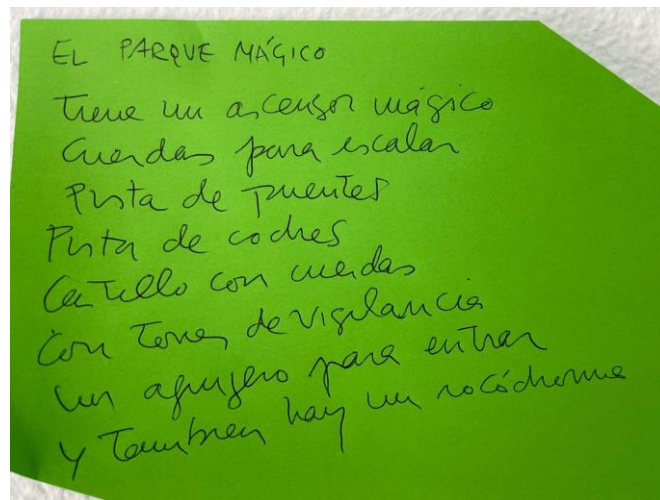 EL PARQUE MÁGICO
Tiene un ascensor mágico
Cuerdas para escalar
Pista de puentes
Pista de coches
Castillo con cuerdas
Con torres de vigilancia
un agujero para entrar
y también hay un rocódromo